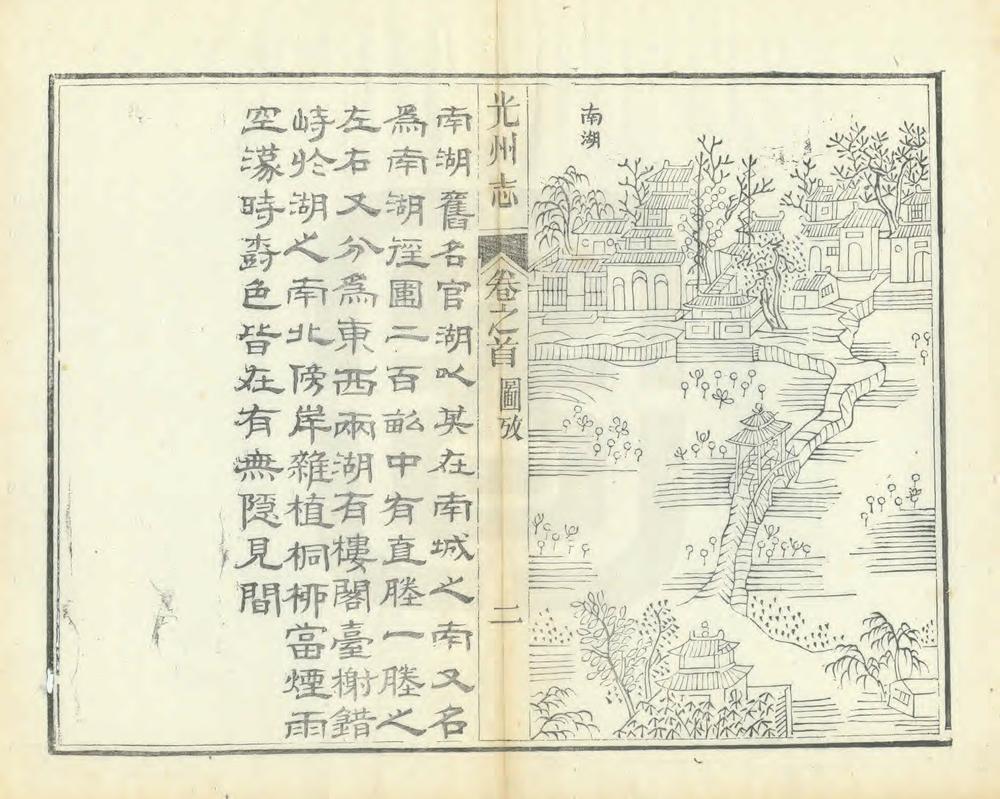 南湖
光州志 卷之首 圖攷 二
南湖舊名官湖以其在南城之南又名
爲南湖徑圍二百畝中有直塍一塍之
左右又分爲東西兩湖有樓閣臺榭錯
峙於湖之南北傍岸雜植桐栁當煙雨
空濛時壽色皆在有無隱見間